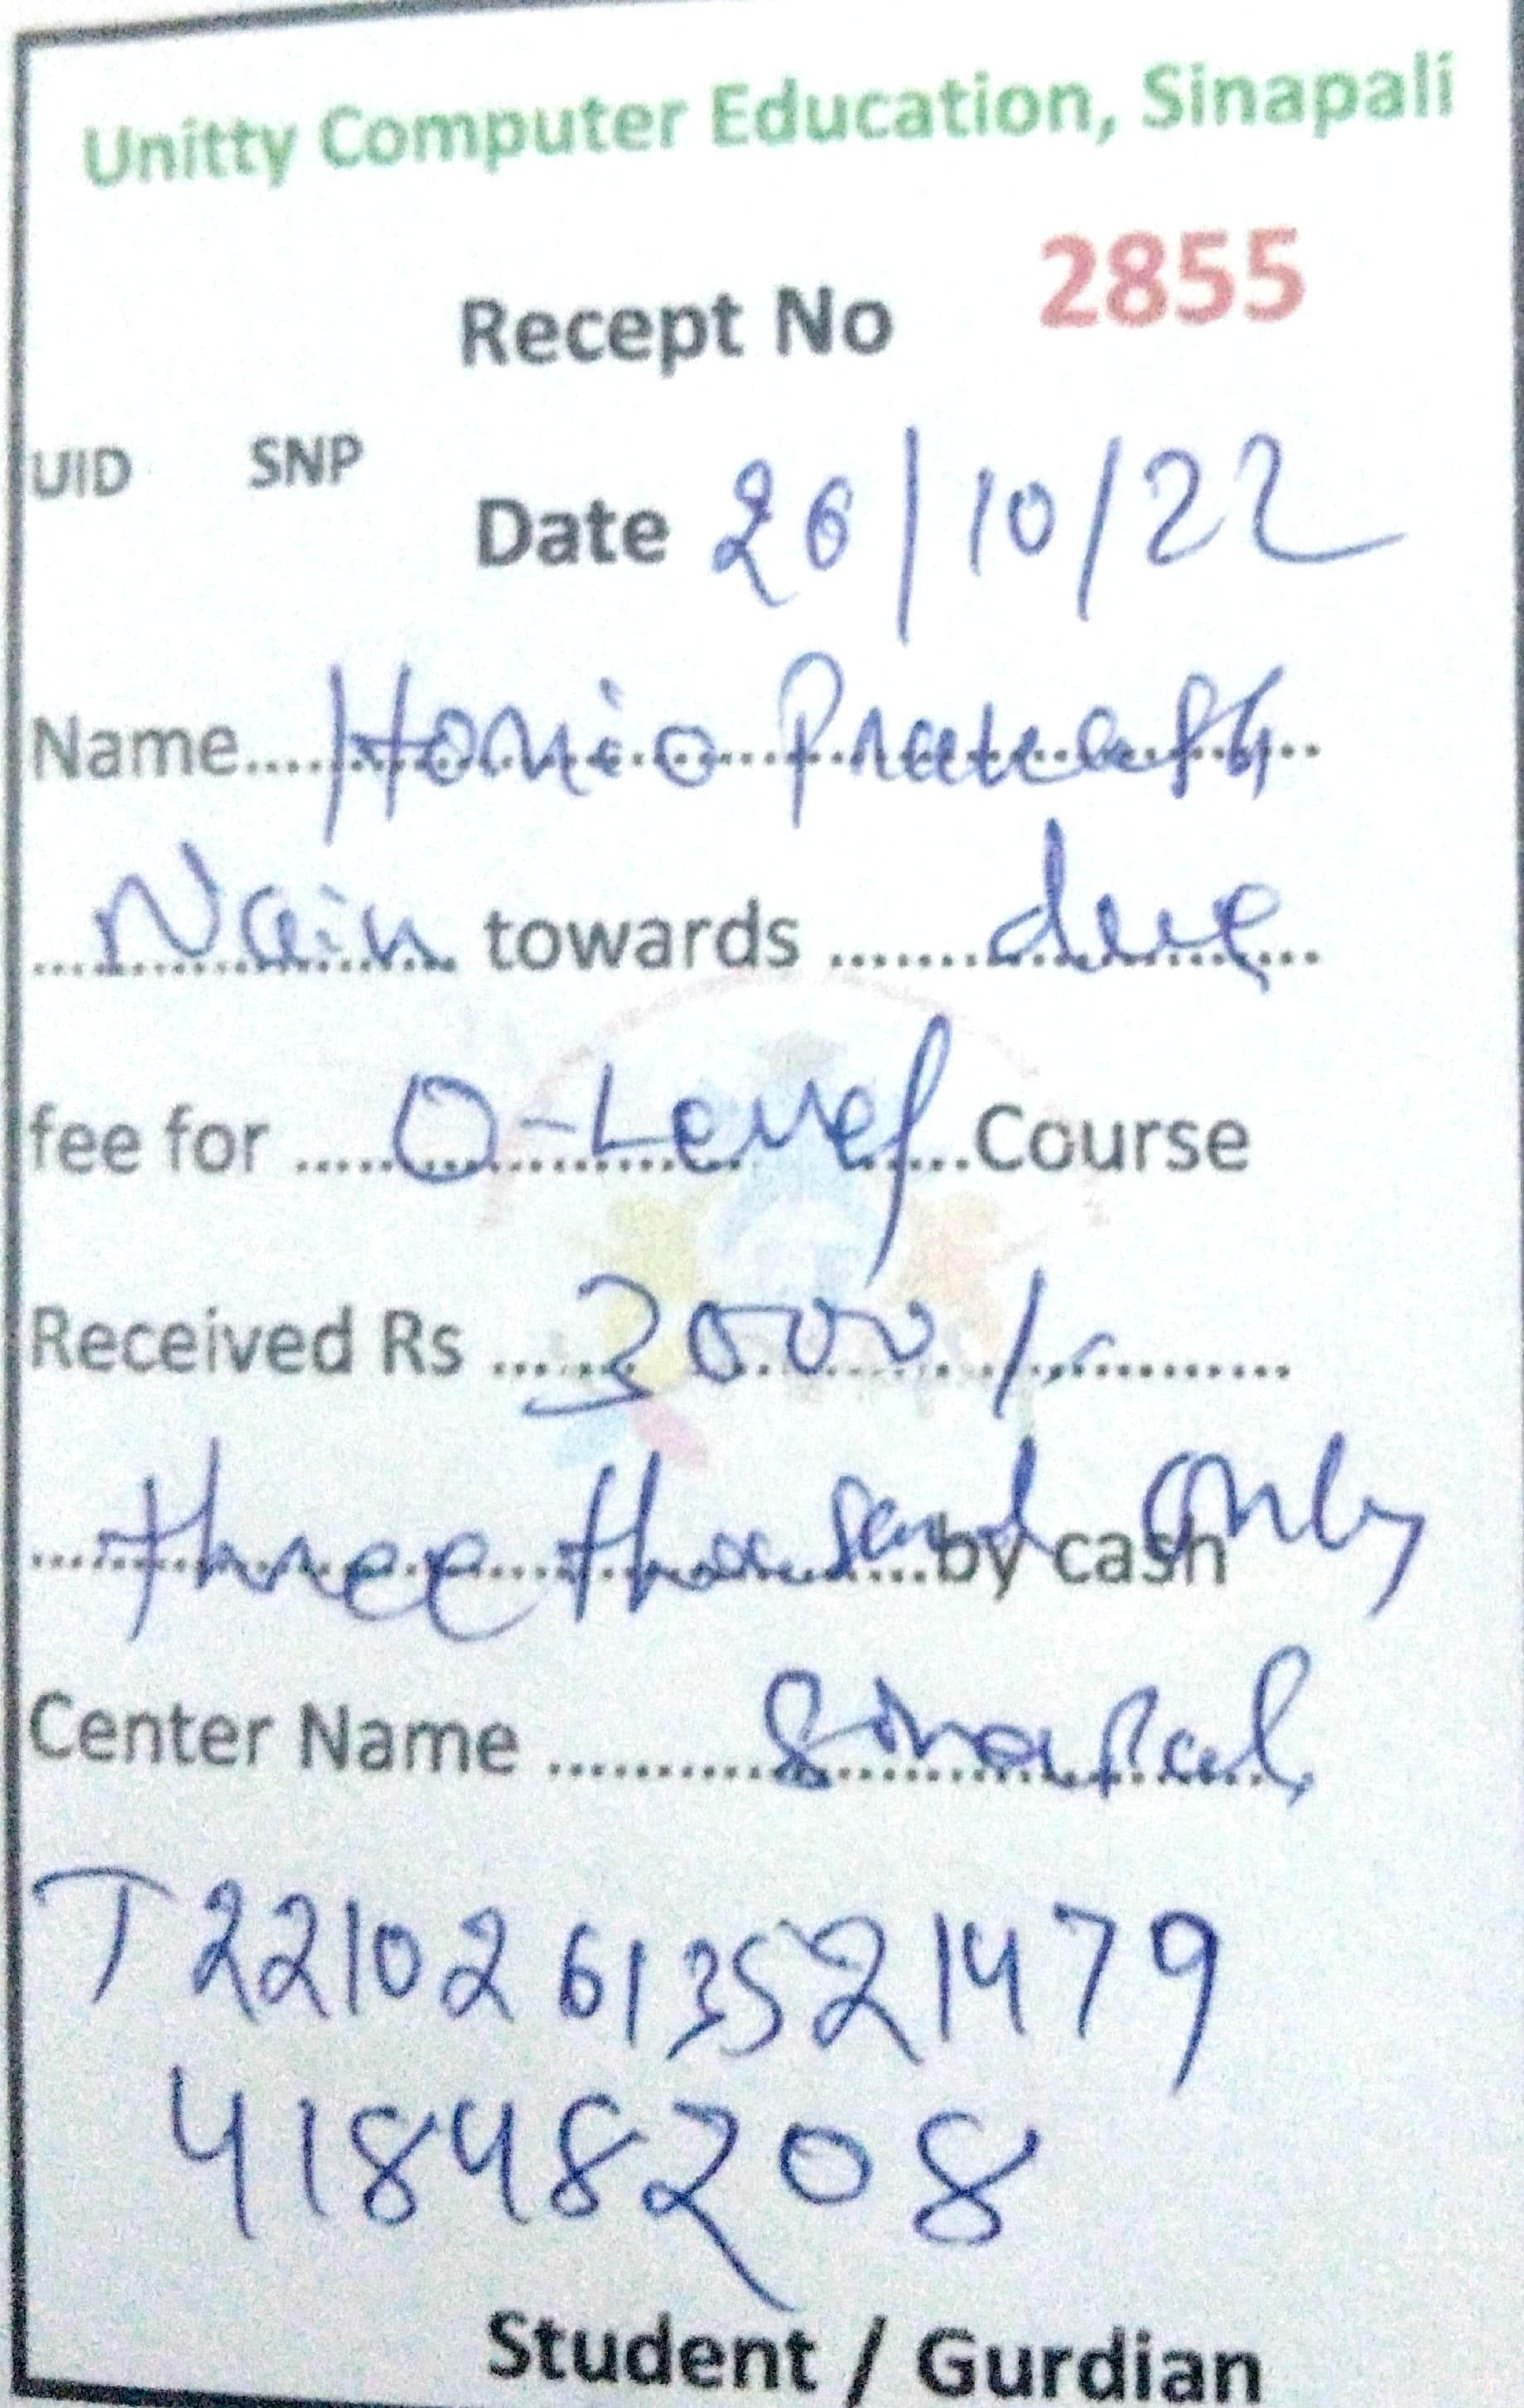 Unitty Computer Education, Sinapali
Recept No 2855
UID SNP
Date 26/10/22
Name.... Homio Prakash
Nain towards ........ due
fee for ..... O-Level ...Course
Received Rs ...... 3000/-
three thousand only by cash
Center Name ........... Sinapali
T22102613521479
41848208
Student / Gurdian